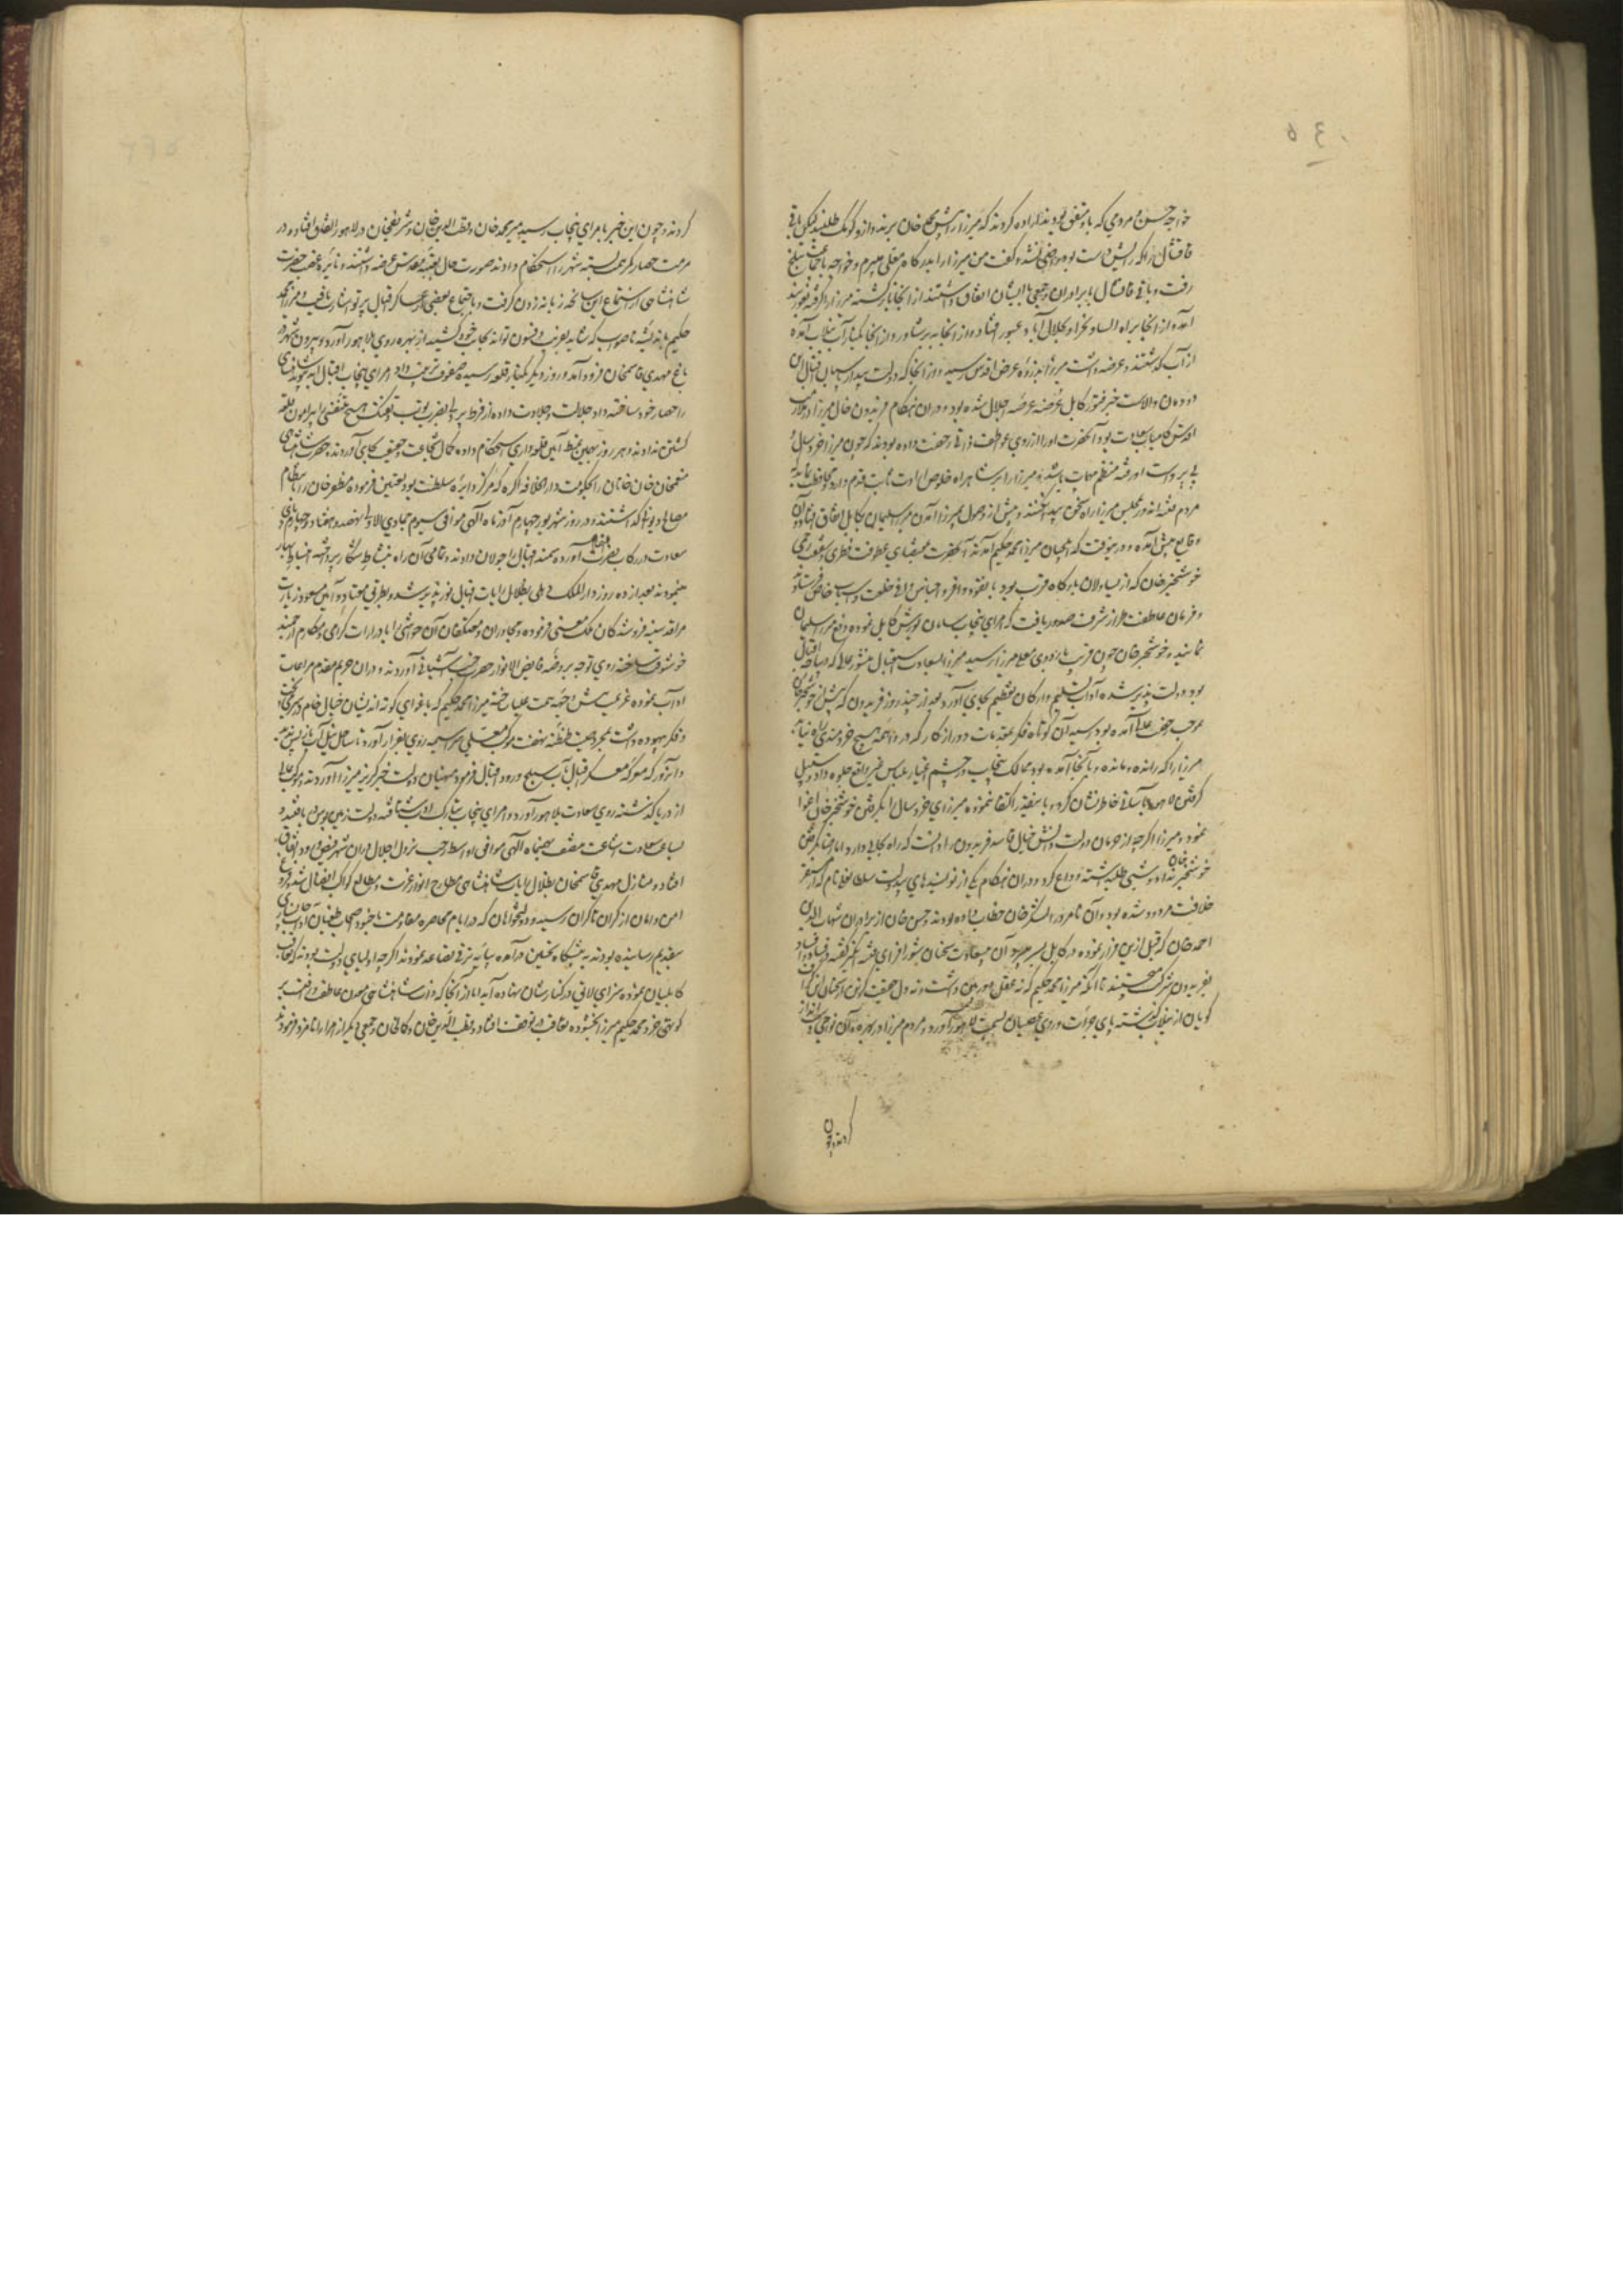 خواجه حسن و مردمی که با و متفق بودند اراده کردند که میرزا را پیش محمد خان برند و ازو کومک طلبند لیکن باقی
قاقشال راکه رایش درست بود راضی نشد و گفت من میرزا را بدرگاه معلی میبرم و خواجه با جماعت ببلخ
رفت و باقی قاقشال با برادران و جمعی با ایشان اتفاق داشتند از آنجا بازگشته میرزا را گرفته بغوربند
آمد و از آنجا براه بجلال آباد عبور افتاد و از آنجا به پرشاور و از آنجا بکنار آب نیلاب آمده
از آب گذشتند و عرضه داشت میرزا بذروه عرض اقدس رسید و از آنجا که دولت بیدار پاسبان اقبال این
دودمان والاست خبر فتور کابل عرضه اجلال شده بود و در آن هنگام فریدون خال میرزا در ملازمت
اقدس کامیاب سعادت بود آنحضرت او را از روی عواطف ذاتی رخصت داده بودند که چون میرزا خردسال و
بی پرواست او رفته منتظم مهمات باشد و میرزا را بر شاهراه خلوص ارادت ثابت قدم دارد و محافظت نماید که
مردم فتنه اندوز در مجلس میرزا راه سخن پیدا نکنند و پیش از وصول بمیرزا آمدن میرزا سلیمان بکابل اتفاق افتاد و آن
وقایع پیش آمد و درینوقت که ایلچیان میرزا محمد حکیم آمدند آنحضرت بمقتضای عطوفت فطری و شفقت جبلی
خوشخبر خان که از یساولان بارگاه قرب بود با نقود وافر و اجناس لایق و خلعت و اسپ خاص فرستادند
و فرمان عاطفت طراز شرف صدور یافت که امرای پنجاب سامان یورش کابل نموده دفع میرزا سلیمان
نمایند و خوشخبر خان چون قریب باردوی میرزا رسید میرزا بسعادت استقبال منشور عالی که دیباچه اقبال
بود دولت پذیر شده آداب تسلیم و ارکان تعظیم بجای آورد و بعد از چند روز فریدون که پیش از خوشخبر خان
بموجب رخصت عالی آمده بود رسید آن کوتاه فکر بمقدمات دور از کار که در واهمه هیچ خردمندی راه نیابد
میرزا را که رانده و مانده و بآنجا آمده بود ممالک پنجاب در چشم اعتبار بلباس غیر واقع جلوه داد و تسهیل
گرفتن لاهور بآسانی خاطرنشان کرد و باینقدر اکتفا ننموده میرزای خردسال را بگرفتن خوشخبر خان اغوا
نمود و میرزا اگرچه از حرمان دولت و دانش خیال فاسد فریدون را دانست که راه بجائی دارد اما رضا بگرفتن
خوشخبر خان نداد و شبی طلبداشته وداع کرد و در آن هنگام یکی از نویسندهای بیدولت سلطانعلی نام که از مقر
خلافت مردود شده بود و آن نامرد را لشکر خان خطاب داده بودند و حسن خان از برادران شهاب الدین
احمد خان که قبل ازین فرار نموده در کابل بسر میبرد آن بیسعادت سخنان شور افزای فتنه انگیز گفته در فساد و افساد
بفریدون شرکت میجستند تا آنکه میرزا محمد حکیم که نه عقل دوربین داشت و نه دل حقیقت گزین از سخنان این گزاف
گویان از نیلاب گذشته پای جرأت و روی عصیان بسمت لاهور آورد و مردم میرزا در بهیره و آن نواحی دست انداز
کردند و چون
کردند و چون این خبر بامرای پنجاب رسید میر محمد خان و قطب الدین خان و شریف خان در لاهور اتفاق افتاده در
مرمت حصار کمر همت بسته شهر را استحکام دادند صورت حال بعتبه مقدس عرضه داشتند و نایره غضب حضرت
شاهنشاهی از استماع این سانحه زبانه زدن گرفت و باجتماع بعضی از عساکر اقبال پرتو اشارت یافت و میرزا محمد
حکیم باندیشه ناصواب که شاید بفریب و فسون تواند بجانب خود کشید از بهیره روی بلاهور آورد و بیرون شهر در
باغ مهدی قاسمخان فرود آمد و روز دیگر بکنار قلعه رسیده صفوف ترتیب داد امرای پنجاب اقبال ابد پیوند شاهنشاهی
را حصار خود ساخته داد جلالت و جلادت داده از فرط پردلی بضرب توپ و تفنگ هیچ متنفسی را پیرامون قلعه
گشتن ندادند و هر روز بهمین نمط آیین قلعه داری استحکام داده کمال شجاعت و حقیقت بجای آوردند حضرت شاهنشاهی
منعم خان خانخانان را بحکومت دارالخلافه آگره که مرکز دایره سلطنت بود تعیین فرموده مظفر خان را بانتظام
مصالح دیوانی گذاشتند و در روز شهریور چهارم آذر ماه الهی موافق سیوم جمادی الاولی نهصد و هفتاد و چهارم پای
سعادت در رکاب نصرت آورده سمند اقبال را جولان دادند و تمامی آن راه بنشاط شکار پرداخته انبساط بسیار
میفرمودند بعد از ده روز دارالملک دهلی بظلال رایات اقبال نور پذیر شد و بطریق معتاد و آیین مسعود زیارت
مراقد سینه فروشندگان ملک معنی فرموده و مجاوران و معتکفان آن حواشی را بادرارات گرامی و مکارم ارجمند
خوشوقت ساخته روی توجه بروضه فایض الانوار حضرت جنت آشیانی آوردند و در آن حریم مقدس مراعات
آداب نموده عزیمت پیش وجهه همت علیا ساخته میرزا محمد حکیم که باغوای کوته اندیشان خیال خام در سر پخته
و فکر بیهوده داشت بمجرد استماع طنطنه نهضت موکب معلی سراسیمه روی بفرار آورد و تا ساحل نیلاب باز پس ندید
و آنروز که موکب معسکر اقبال آب ستلج ورود اقبال فرمود منهیان دولت خبر گریز میرزا آوردند و موکب عالی
از دریا گذشته روی سعادت بلاهور آورد و امرای پنجاب بتارک ادب شتافته دولت زمین بوس یافتند و
بساعت سعادت اشاعت منتصف بهمنماه الهی موافق اواسط رجب نزول اجلال در آن شهر فیض ورود اتفاق
افتاد و منازل مهدی قاسمخان بظلال رایات شاهنشاهی مطارح انوار عزت و مطالع کواکب افضال شد مژده
امن و امان از کران تا کران رسید و دولتخواهان که در ایام محاصره مقاومت با جنود اصحاب طغیان آداب جانسپاری
بتقدیم رسانیده بودند به پیشگاه تحسین درآمده پایه ترقی تصاعد نمودند اگرچه اولیای دولت بودند که تعاقب
کابلیان نموده سزای لایق در کنار ایشان نهاده آید اما از آنجا که ذات شاهنشاهی معدن عاطفت و رأفت بر
کوتهی خرد محمد حکیم میرزا بخشوده تعاقب در توقف افتاد و قطب الدین خان و کمال خان و جمعی دیگر از امرا را نامزد فرمودند